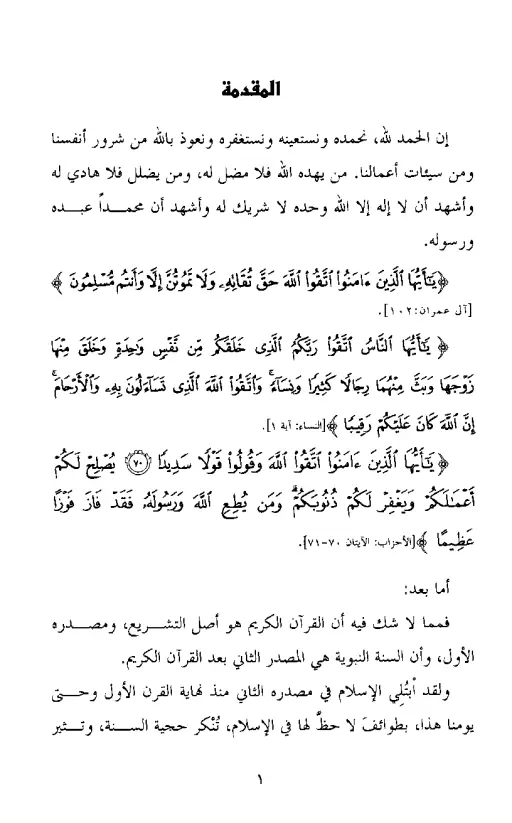 المقدمة
إن الحمد لله، نحمده ونستعينه ونستغفره ونعوذ بالله من شرور أنفسنا
ومن سيئات أعمالنا. من يهده الله فلا مضل له، ومن يضلل فلا هادي له
وأشهد أن لا إله إلا الله وحده لا شريك له وأشهد أن محمـــداً عبـــده
ورسوله.
﴿يَٰٓأَيُّهَا ٱلَّذِينَ ءَامَنُوا۟ ٱتَّقُوا۟ ٱللَّهَ حَقَّ تُقَاتِهِۦ وَلَا تَمُوتُنَّ إِلَّا وَأَنتُم مُّسْلِمُونَ﴾
[آل عمران:١٠٢].
﴿يَٰٓأَيُّهَا ٱلنَّاسُ ٱتَّقُوا۟ رَبَّكُمُ ٱلَّذِى خَلَقَكُم مِّن نَّفْسٍ وَٰحِدَةٍ وَخَلَقَ مِنْهَا
زَوْجَهَا وَبَثَّ مِنْهُمَا رِجَالًا كَثِيرًا وَنِسَآءً ۚ وَٱتَّقُوا۟ ٱللَّهَ ٱلَّذِى تَسَآءَلُونَ بِهِۦ وَٱلْأَرْحَامَ ۚ
إِنَّ ٱللَّهَ كَانَ عَلَيْكُمْ رَقِيبًا﴾[النساء: آية ١].
﴿يَٰٓأَيُّهَا ٱلَّذِينَ ءَامَنُوا۟ ٱتَّقُوا۟ ٱللَّهَ وَقُولُوا۟ قَوْلًا سَدِيدًا ﴿٧٠﴾ يُصْلِحْ لَكُمْ
أَعْمَٰلَكُمْ وَيَغْفِرْ لَكُمْ ذُنُوبَكُمْ ۗ وَمَن يُطِعِ ٱللَّهَ وَرَسُولَهُۥ فَقَدْ فَازَ فَوْزًا
عَظِيمًا﴾[الأحزاب: الآيتان ٧٠-٧١].
أما بعد:
فمما لا شك فيه أن القرآن الكريم هو أصل التشـــريع، ومصـــدره
الأول، وأن السنة النبوية هي المصدر الثاني بعد القرآن الكريم.
ولقد أبتُلِي الإسلام في مصدره الثاني منذ نهاية القرن الأول وحـــتى
يومنا هذا، بطوائفَ لا حظَّ لها في الإسلام، تُنْكر حجية الســـنة، وتـــثير
١